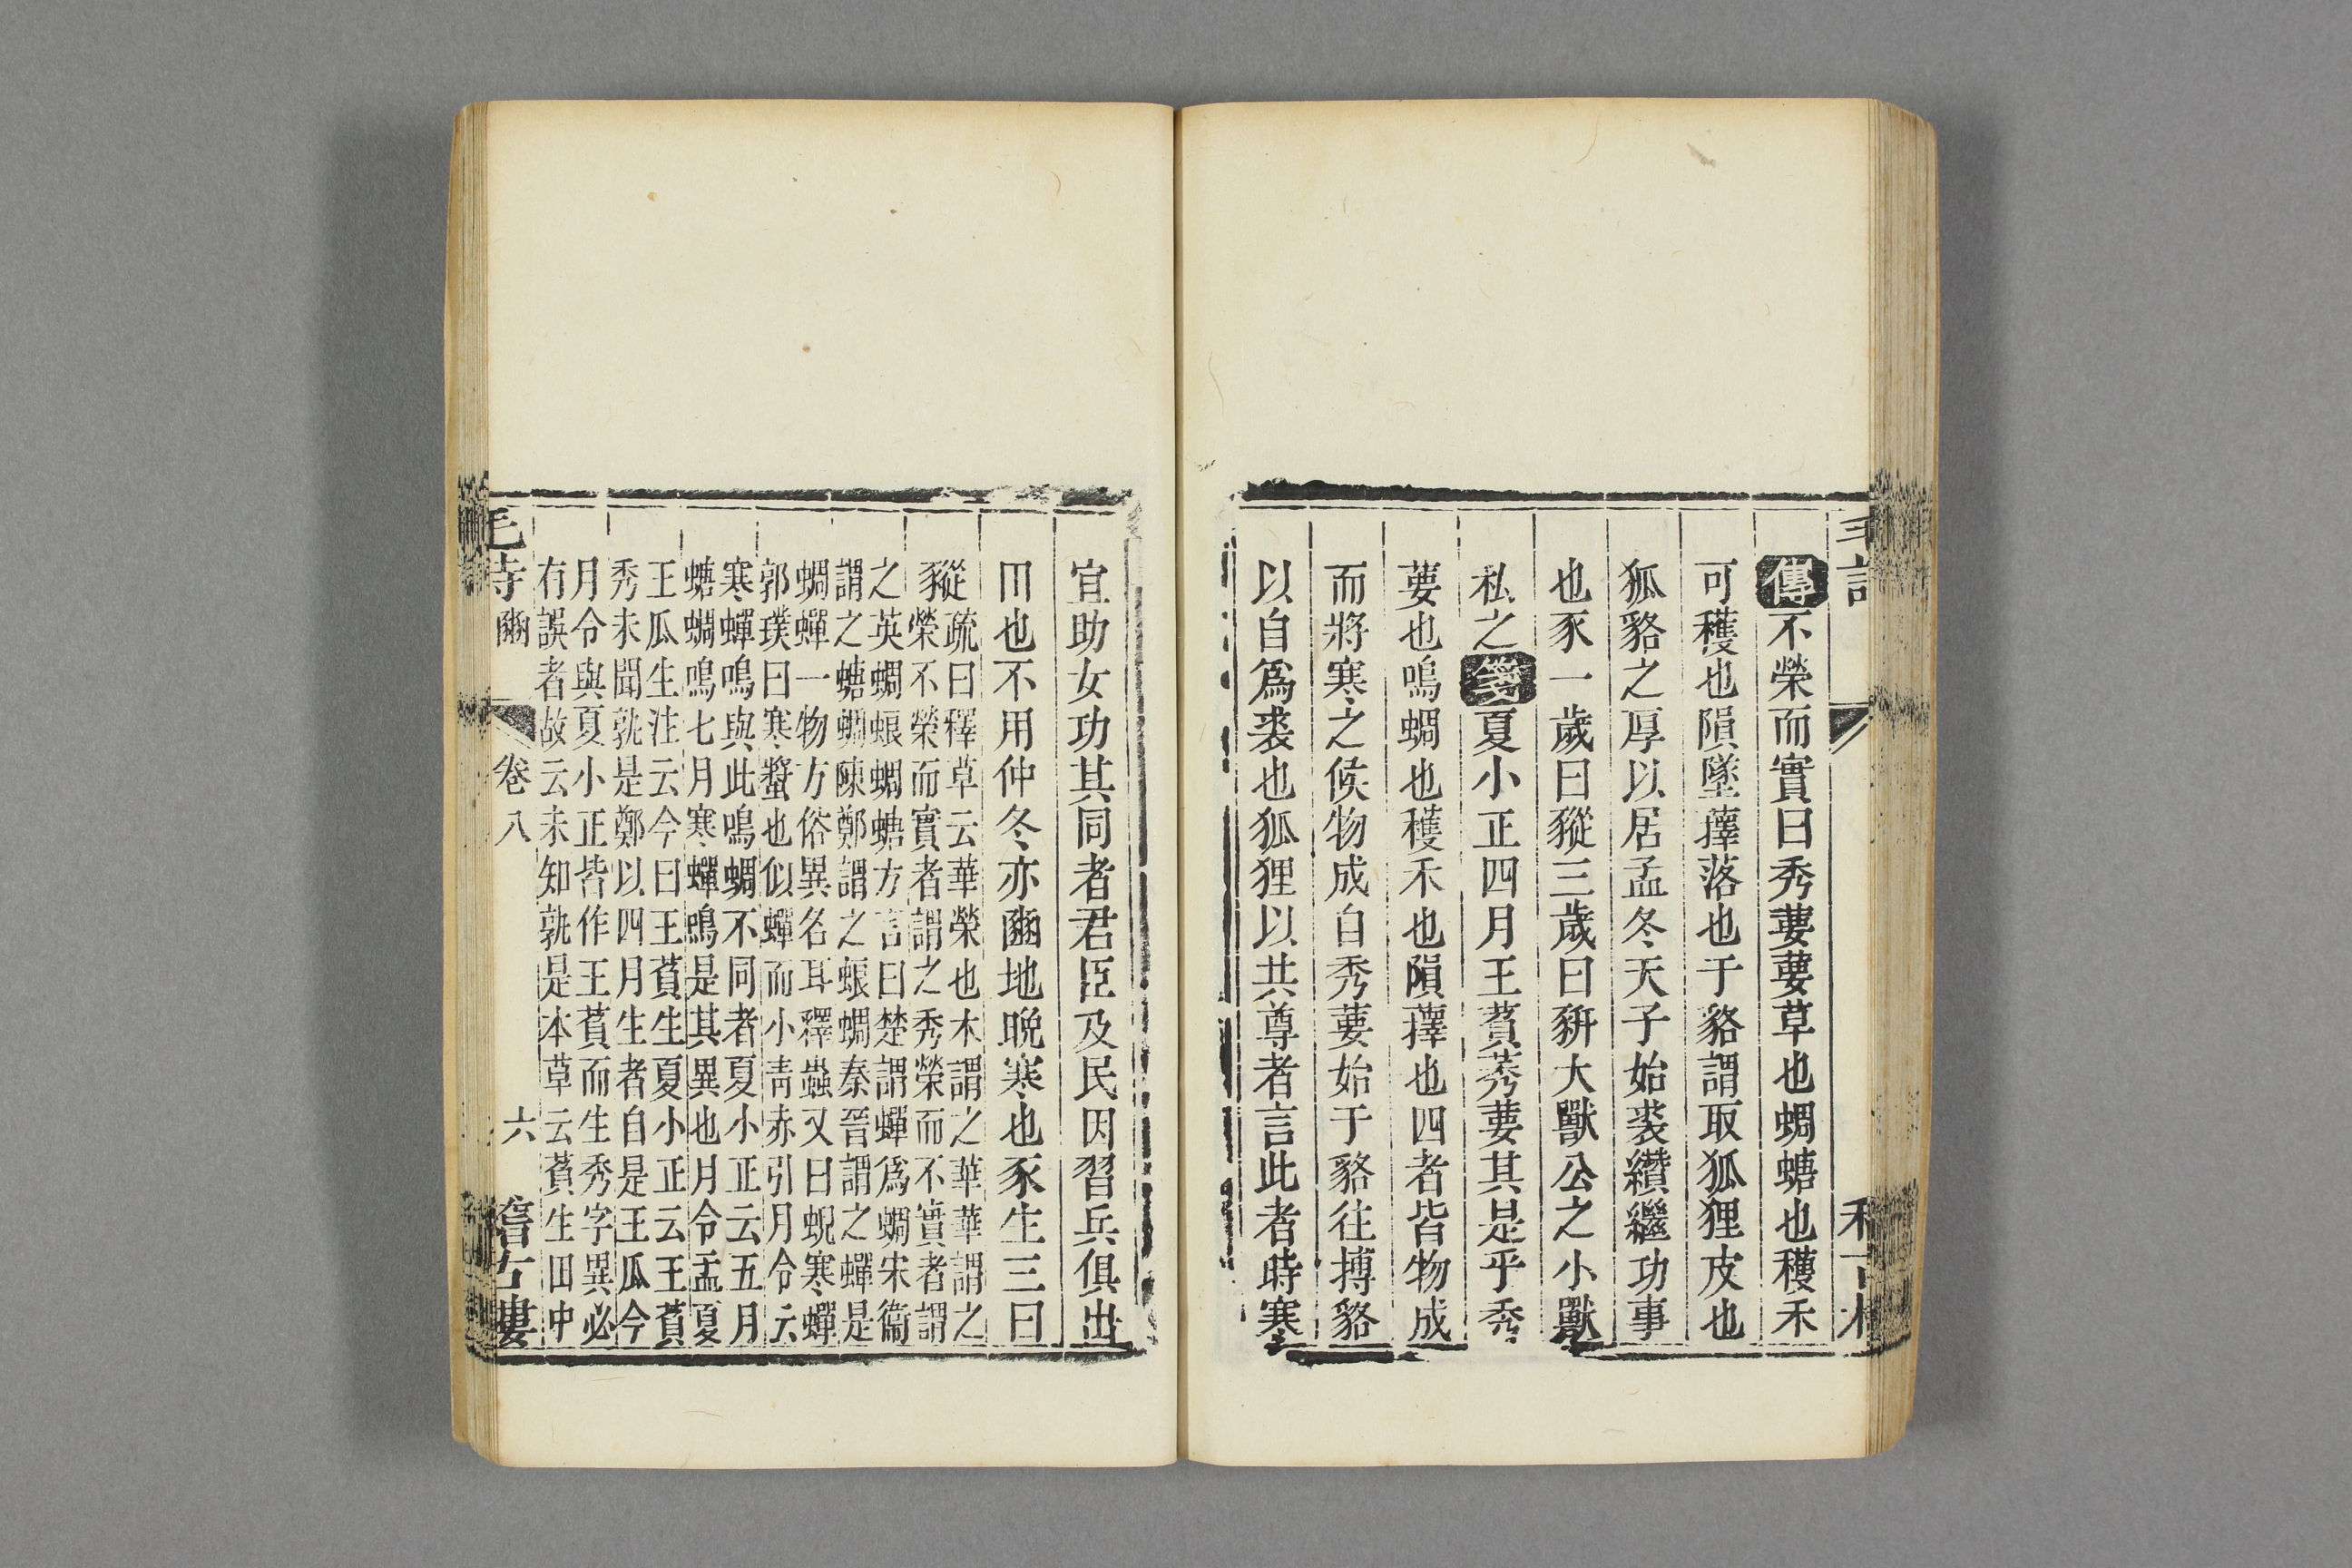 傳不榮而實曰秀葽葽草也蜩螗也穫禾
可穫也隕墜蘀落也于貉謂取狐狸皮也
狐貉之厚以居孟冬天子始裘纘繼功事
也豕一歲曰豵三歲曰豜大獸公之小獸
私之箋夏小正四月王萯莠葽其是乎秀
葽也鳴蜩也穫禾也隕蘀也四者皆物成
而將寒之候物成自秀葽始于貉往搏貉
以自爲裘也狐狸以共尊者言此者時寒
宜助女功其同者君臣及民因習兵俱出
田也不用仲冬亦豳地晚寒也豕生三曰
豵疏曰釋草云華榮也木謂之華華謂之
榮不榮而實者謂之秀榮而不實者謂
之英蜩蜋蜩螗方言曰楚謂蟬爲蜩宋衞
謂之螗蜩陳鄭謂之蜋蜩秦晉謂之蟬是
蜩蟬一物方俗異名耳釋蟲又曰蜺寒蟬
郭璞曰寒螿也似蟬而小青赤引月令云
寒蟬鳴與此鳴蜩不同者夏小正云五月
螗蜩鳴七月寒蟬鳴是其異也月令孟夏
王瓜生注云今曰王萯生夏小正云王萯
秀未聞孰是鄭以四月生者自是王瓜今
月令與夏小正皆作王萯而生秀字異必
有誤者故云未知孰是本草云萯生田中
豳 卷八 六